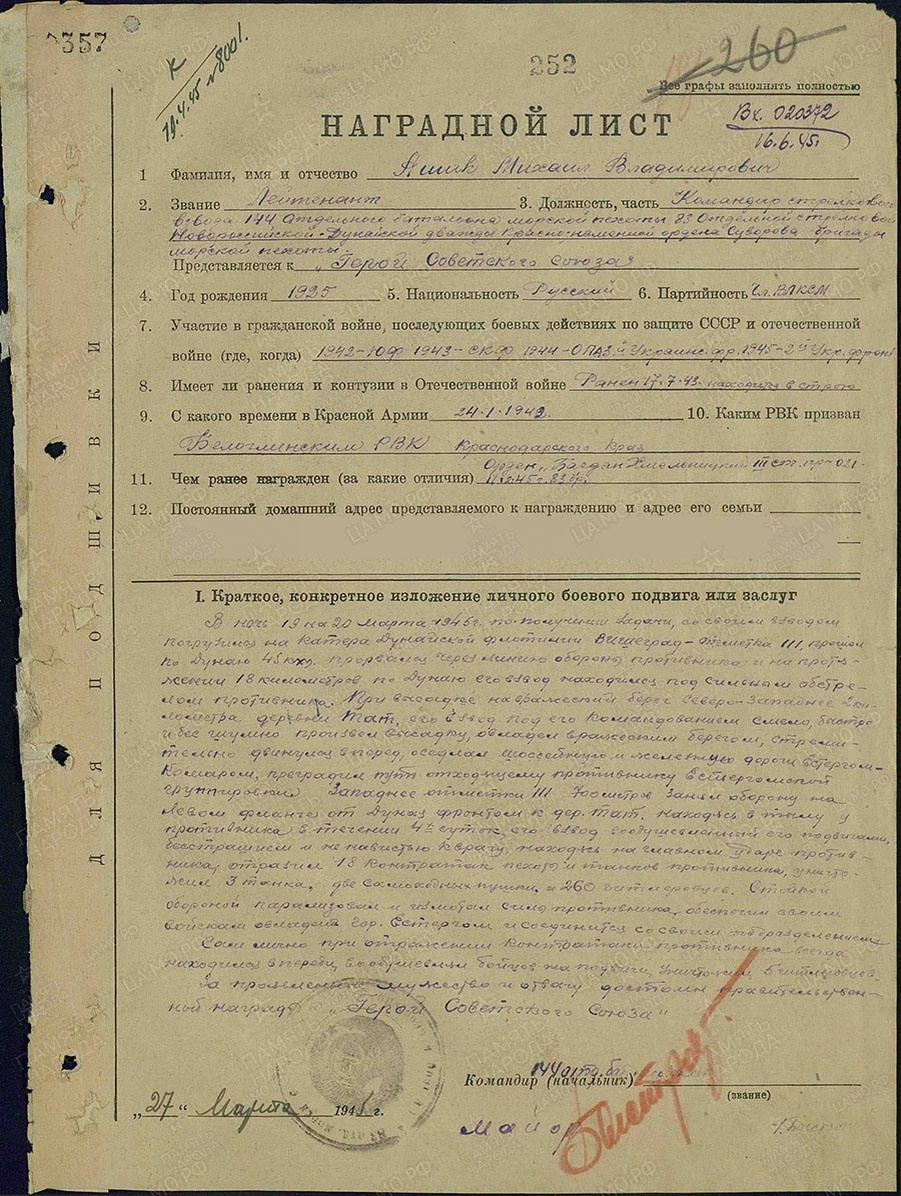 357
К
19.4.45 №8001.
252
260
Все графы заполнять полностью
Вх. 020372
16.6.45г
НАГРАДНОЙ ЛИСТ
1 Фамилия, имя и отчество Михаил Владимирович
2. Звание Лейтенант 3. Должность, часть Командир стрелкового
взвода 144 Отдельного батальона морской пехоты 83 Отдельной стрелковой
Новороссийской-Дунайской дважды Краснознаменной ордена Суворова бригады
морской пехоты
Представляется к „Герой Советского Союза"
4. Год рождения 1925 5. Национальность Русский 6. Партийность Чл. ВЛКСМ
7. Участие в гражданской войне, последующих боевых действиях по защите СССР и отечественной
войне (где, когда) 1942-ЮФ 1943-СКФ 1944-ОПА 3й Украинс. фр. 1945-2й Укр. фронт
8. Имеет ли ранения и контузии в Отечественной войне Ранен 17.7.43. находится в строю
9. С какого времени в Красной Армии 24.1.1942. 10. Каким РВК призван
Белоглинским РВК Краснодарского Края
Орден „Богдан Хмельницкий III ст. пр-021
11. Чем ранее награжден (за какие отличия)
12. Постоянный домашний адрес представляемого к награждению и адрес его семьи
ДЛЯ ПОДШИВКИ
I. Краткое, конкретное изложение личного боевого подвига или заслуг
В ночь 19 на 20 марта 1945г. по получении задачи, со своим взводом
погрузился на катера Дунайской флотилии Вишеград-отметка 111, прошол
по Дунаю 45 км, прорвался через линию обороны противника и на протя-
жении 18 километров по Дунаю его взвод находился под сильным обстре-
лом противника. При высадке на вражеский берег Северо-Западнее 2 ки-
лометра деревни Тат, его взвод под его командованием смело, быстро
и бесшумно произвел высадку, овладел вражеским берегом, стреми-
тельно двинулся вперед, оседлал шоссейную и железную дороги Естергом-
Комаром, преградил пути отходящему противнику Естергомской
группировки. Западнее отметки 111 700 метров занял оборону на
левом фланге от Дуная фронтом к дер. Тат. Находясь в тылу у
противника в течении 4х суток, его взвод воодушевленный его подвигами,
бесстрашием и ненавистью к врагу, находясь на главном ударе против-
ника, отразил 18 контратак пехоты и танков противника, уничто-
жил 3 танка, две самоходных пушки, и 260 гитлеровцев. Стойкой
обороной парализовал и измотал силы противника, обеспечил своим
войскам овладеть гор. Естергом и соединится со своим подразделением
Сам лично при отражении контратаки противника всегда
находился впереди, воодушевлял бойцов на подвиги, уничтожил 5 гитлеровцев.
За проявленные мужество и отвагу достоин правительствен-
ной награды „Герой Советского Союза"
144
Командир (начальник)
(звание)
„27" Марта 1945 г.
Майор